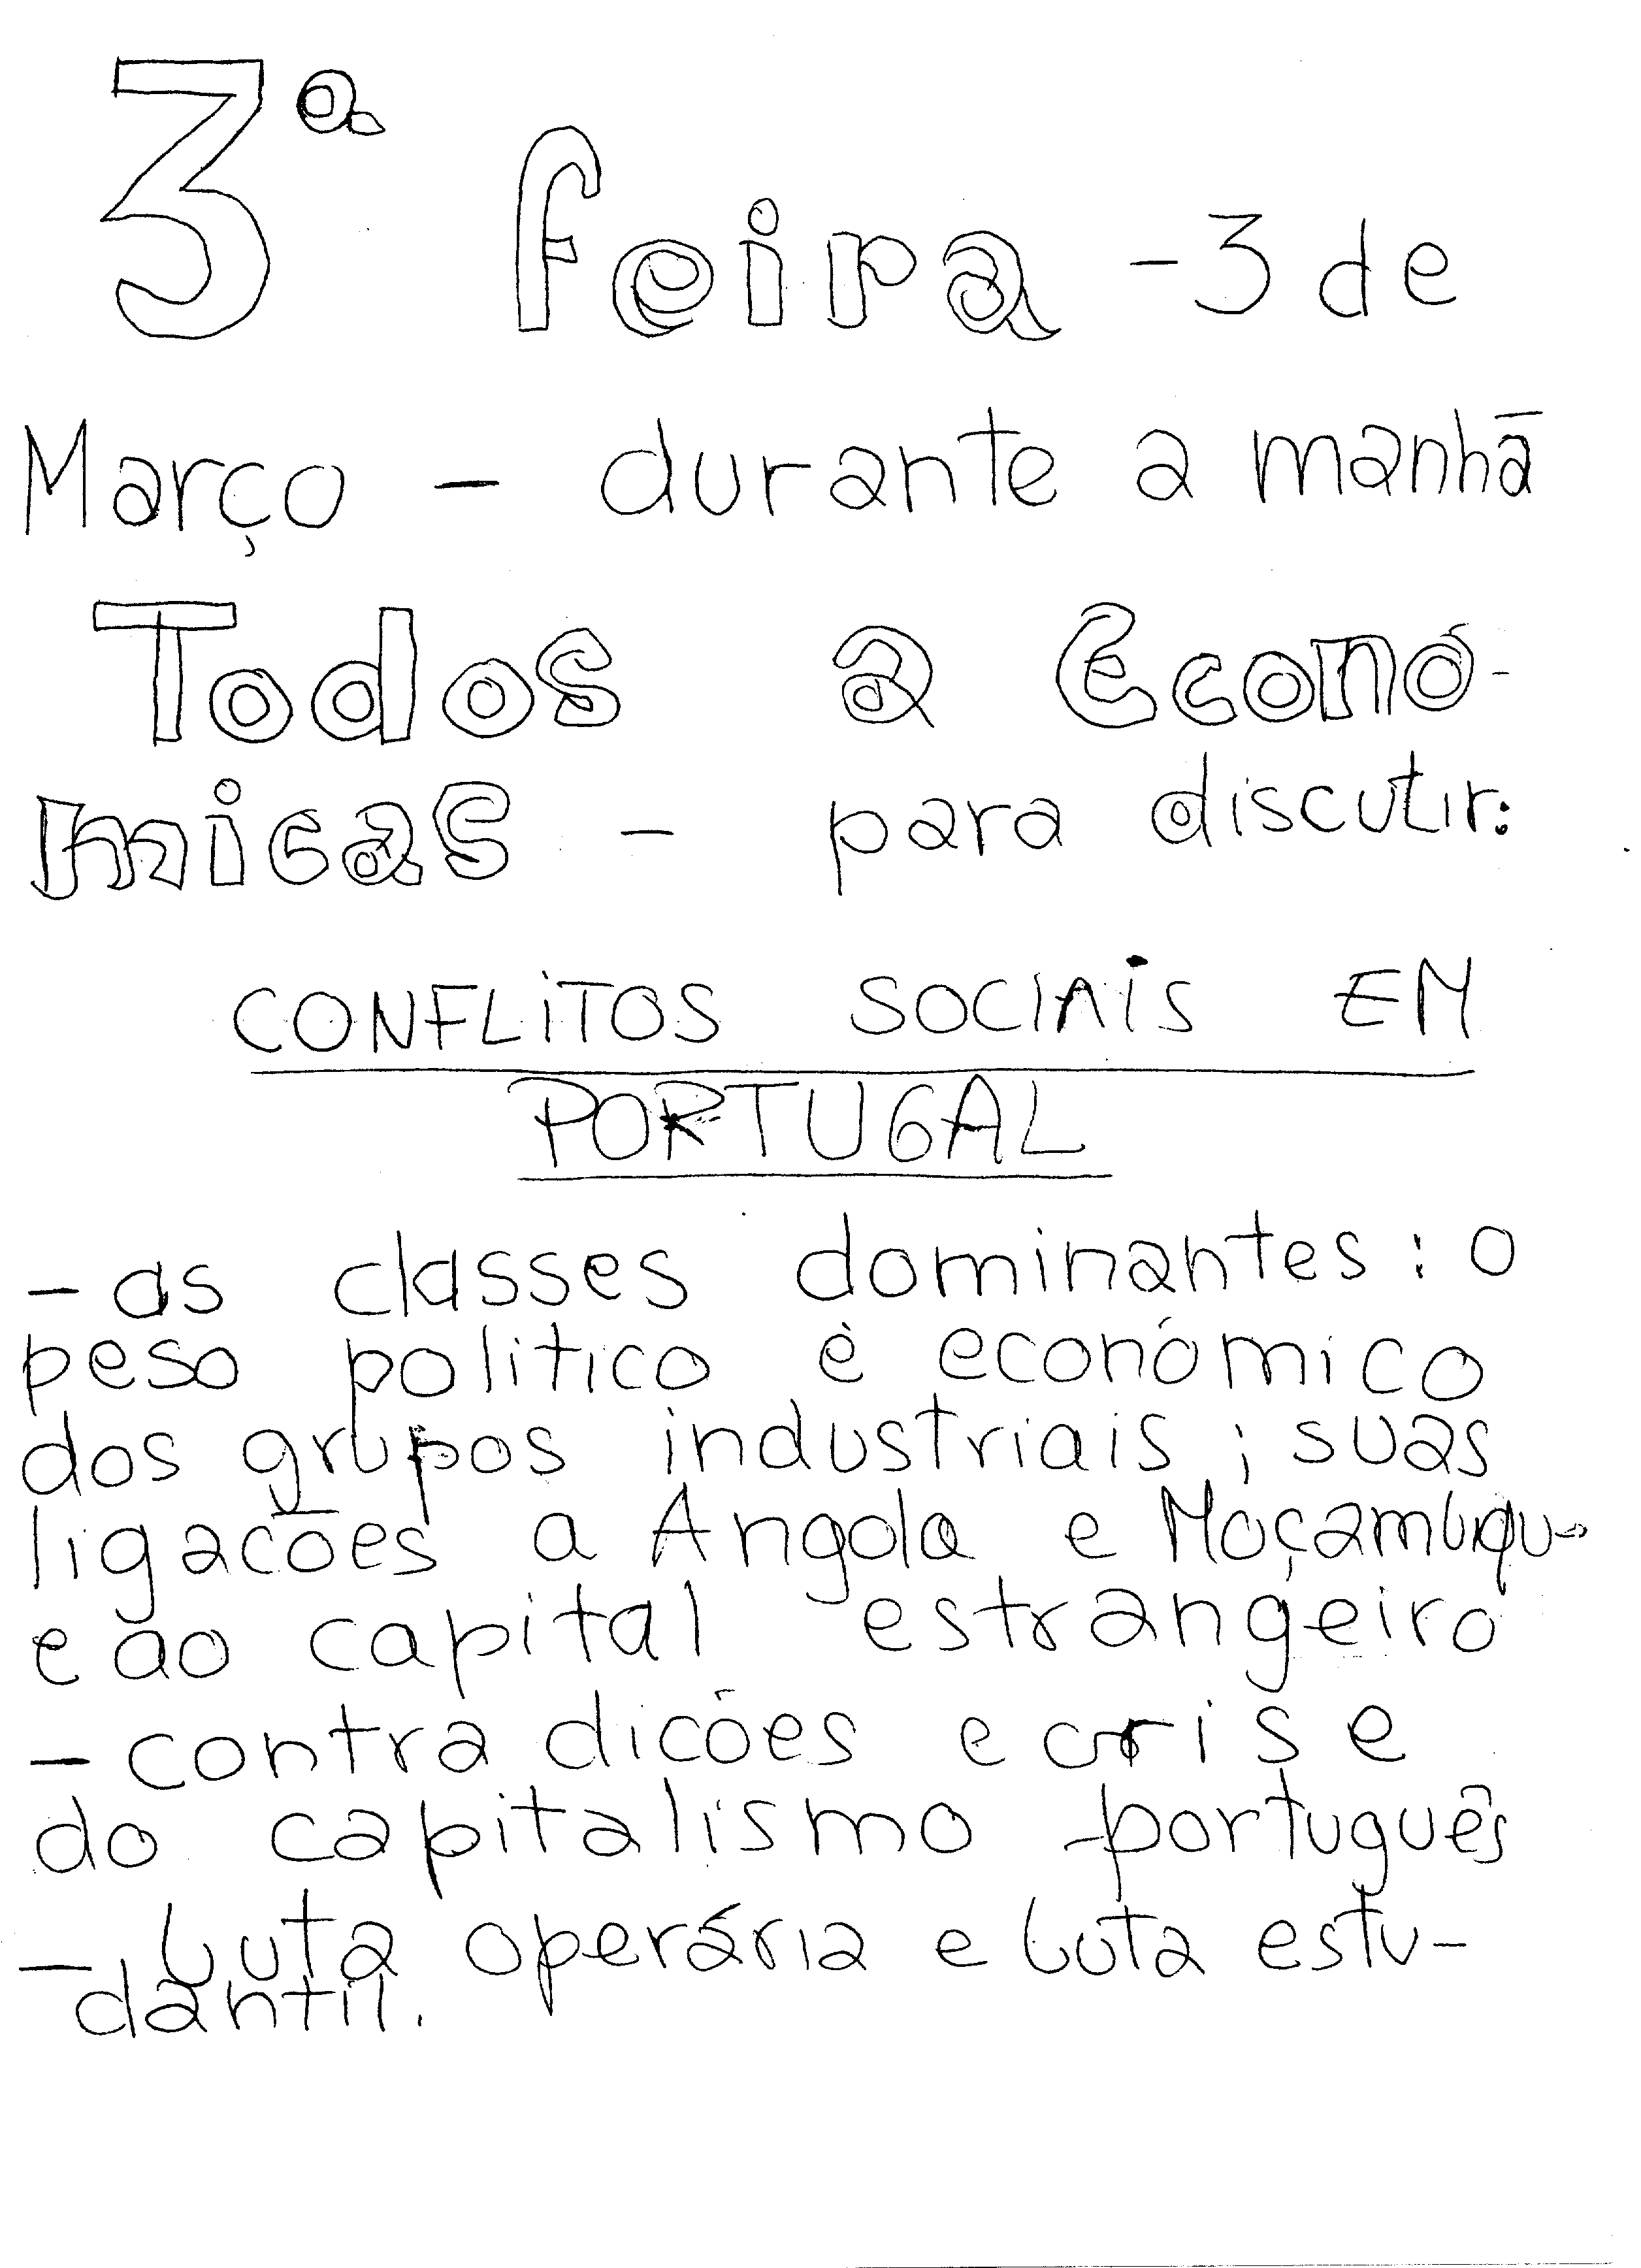 3ª feira - 3 de
Março - durante a manhã
Todos a Econó-
micas - para discutir:
CONFLITOS SOCIAIS EM
PORTUGAL
- as classes dominantes: o
peso politico e económico
dos grupos industriais; suas
ligacões a Angola e Moçambique
e ao capital estrangeiro
- contradicões e crise
do capitalismo português
- luta operária e luta estu-
dantil.